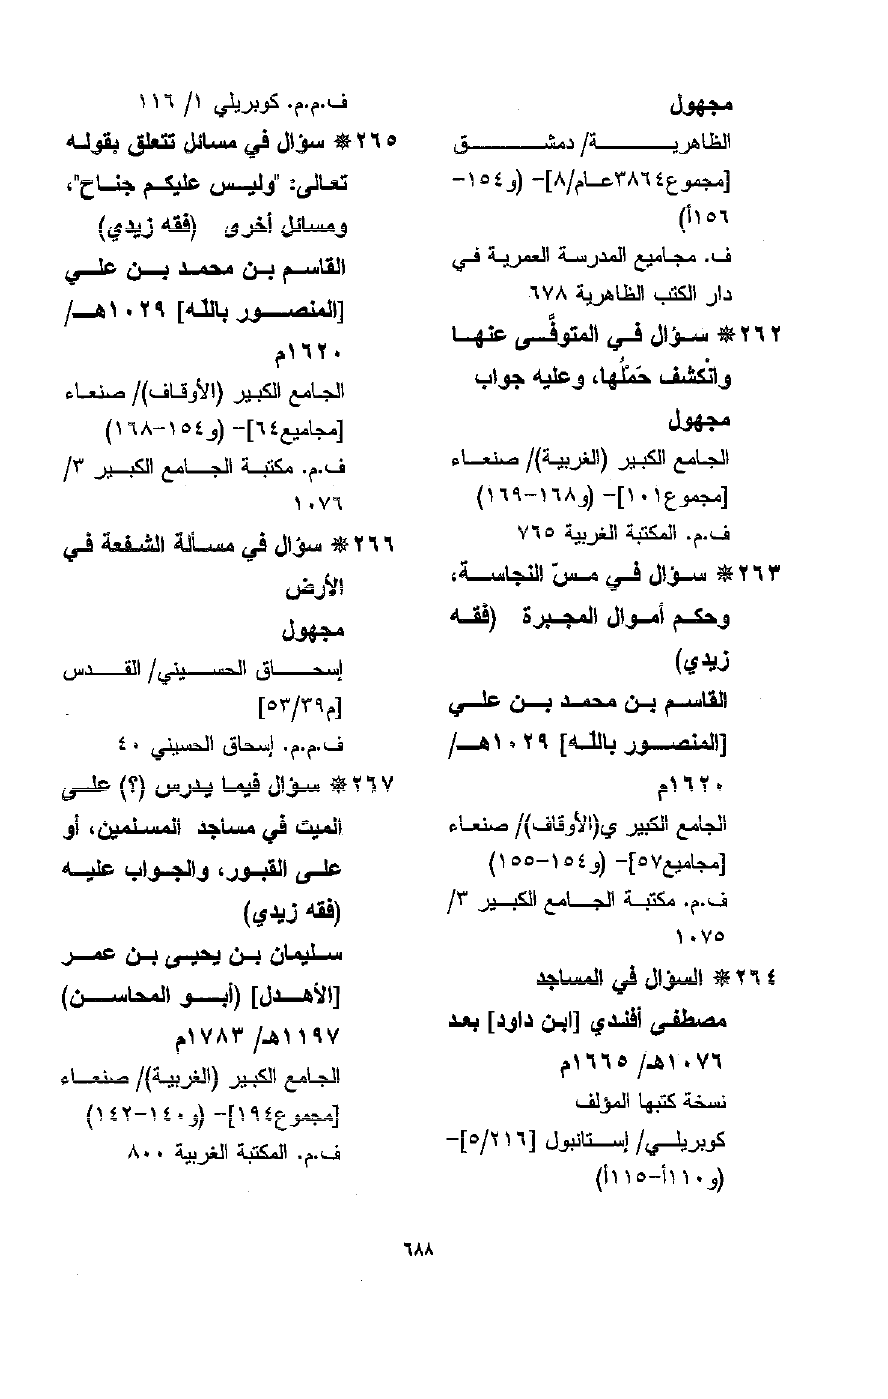 مجهول
الظاهرية/ دمشق
[مجموع٣٨٦٤عام/٨]- (و١٥٤-
١٥٦أ)
ف. مجاميع المدرسة العمرية في
دار الكتب الظاهرية ٦٧٨
٢٦٢* سؤال في المتوفَّى عنها
وانْكشف حَمْلُها، وعليه جواب
مجهول
الجامع الكبير (الغربية)/ صنعاء
[مجموع١٠١]- (و١٦٨-١٦٩)
ف.م. المكتبة الغربية ٧٦٥
٢٦٣* سؤال في مسّ النجاسة،
وحكم أموال المجبرة (فقه
زيدي)
القاسم بن محمد بن علي
[المنصور بالله] ١٠٢٩هـ/
١٦٢٠م
الجامع الكبير ي(الأوقاف)/ صنعاء
[مجاميع٥٧]- (و١٥٤-١٥٥)
ف.م. مكتبة الجامع الكبير ٣/
١٠٧٥
٢٦٤* السؤال في المساجد
مصطفى أفندي [ابن داود] بعد
١٠٧٦هـ/ ١٦٦٥م
نسخة كتبها المؤلف
كوبريلي/ إستانبول [٥/٢١٦]-
(و١١٠أ-١١٥أ)
ف.م.م. كوبريلي ١/ ١١٦
٢٦٥* سؤال في مسائل تتعلق بقوله
تعالى: "وليس عليكم جناح"،
ومسائل أخرى (فقه زيدي)
القاسم بن محمد بن علي
[المنصور بالله] ١٠٢٩هـ/
١٦٢٠م
الجامع الكبير (الأوقاف)/ صنعاء
[مجاميع٦٤]- (و١٥٤-١٦٨)
ف.م. مكتبة الجامع الكبير ٣/
١٠٧٦
٢٦٦* سؤال في مسألة الشفعة في
الأرض
مجهول
إسحاق الحسيني/ القدس
[م٥٣/٣٩]
ف.م.م. إسحاق الحسيني ٤٠
٢٦٧* سؤال فيما يدرس (؟) على
الميت في مساجد المسلمين، أو
على القبور، والجواب عليه
(فقه زيدي)
سليمان بن يحيى بن عمر
[الأهدل] (أبو المحاسن)
١١٩٧هـ/ ١٧٨٣م
الجامع الكبير (الغربية)/ صنعاء
[مجموع١٩٤]- (و١٤٠-١٤٢)
ف.م. المكتبة الغربية ٨٠٠
٦٨٨